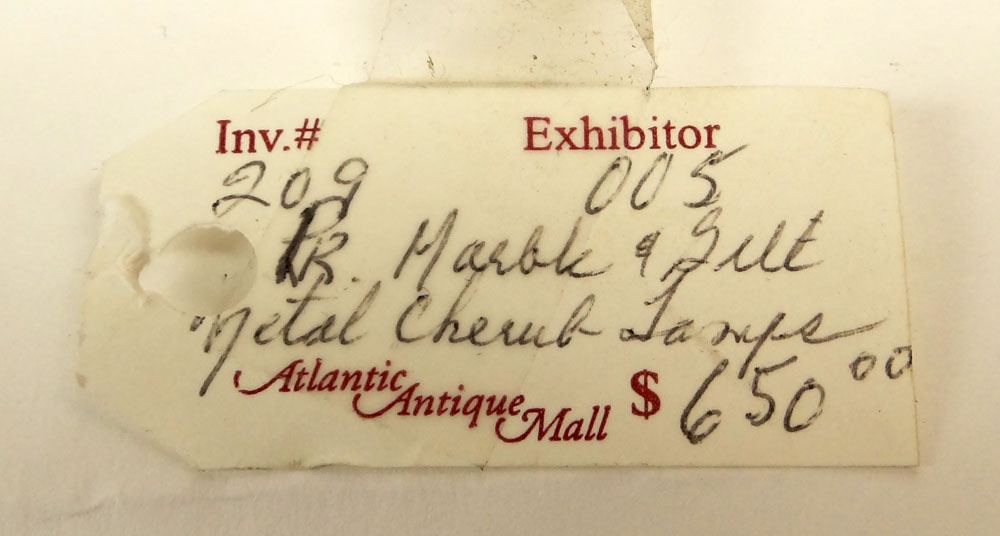 Inv.# Exhibitor
209 005
PR. Marble & Gilt
Metal Cherub Lamps
Atlantic Antique Mall $ 650 00